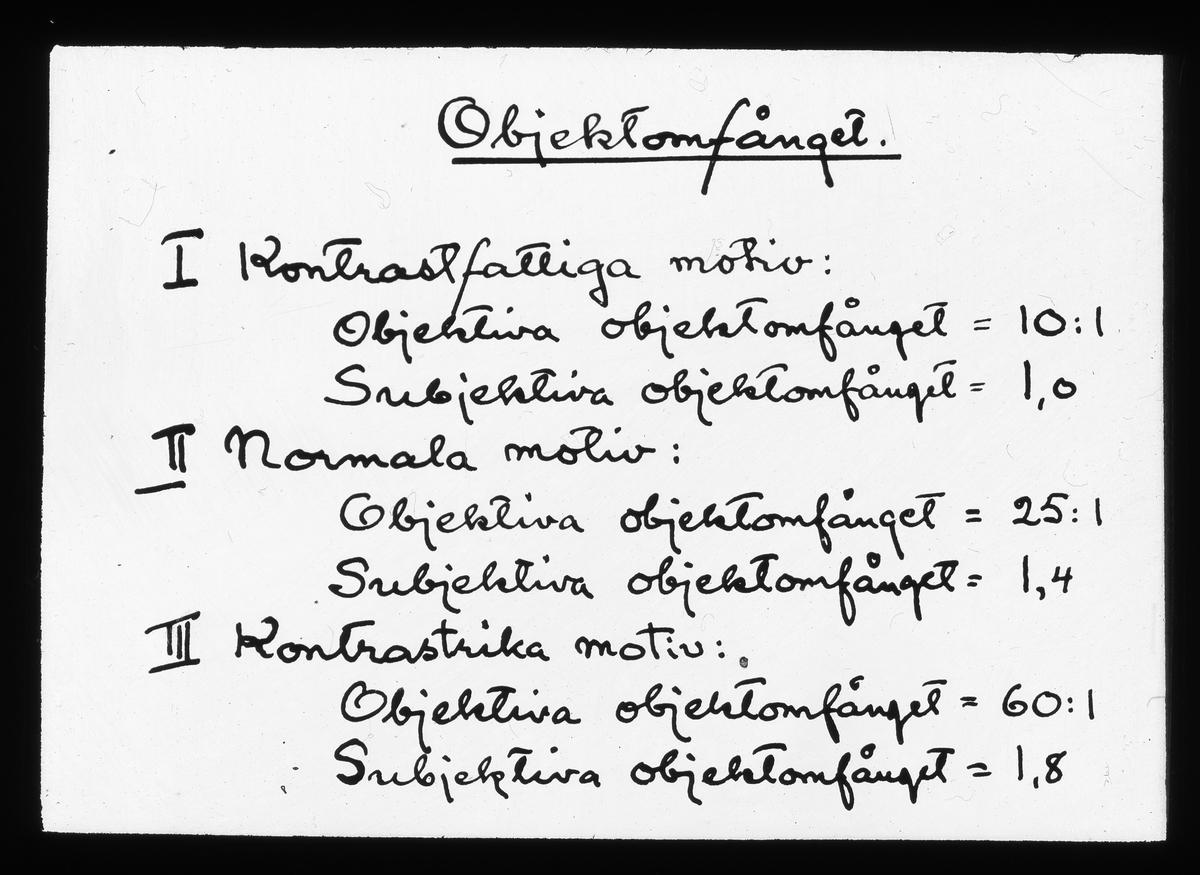 Objektomfånget.
I Kontrastfattiga motiv:
Objektiva objektomfånget = 10:1
Subjektiva objektomfånget = 1,0
II Normala motiv:
Objektiva objektomfånget = 25:1
Subjektiva objektomfånget = 1,4
III Kontrastrika motiv:
Objektiva objektomfånget = 60:1
Subjektiva objektomfånget = 1,8